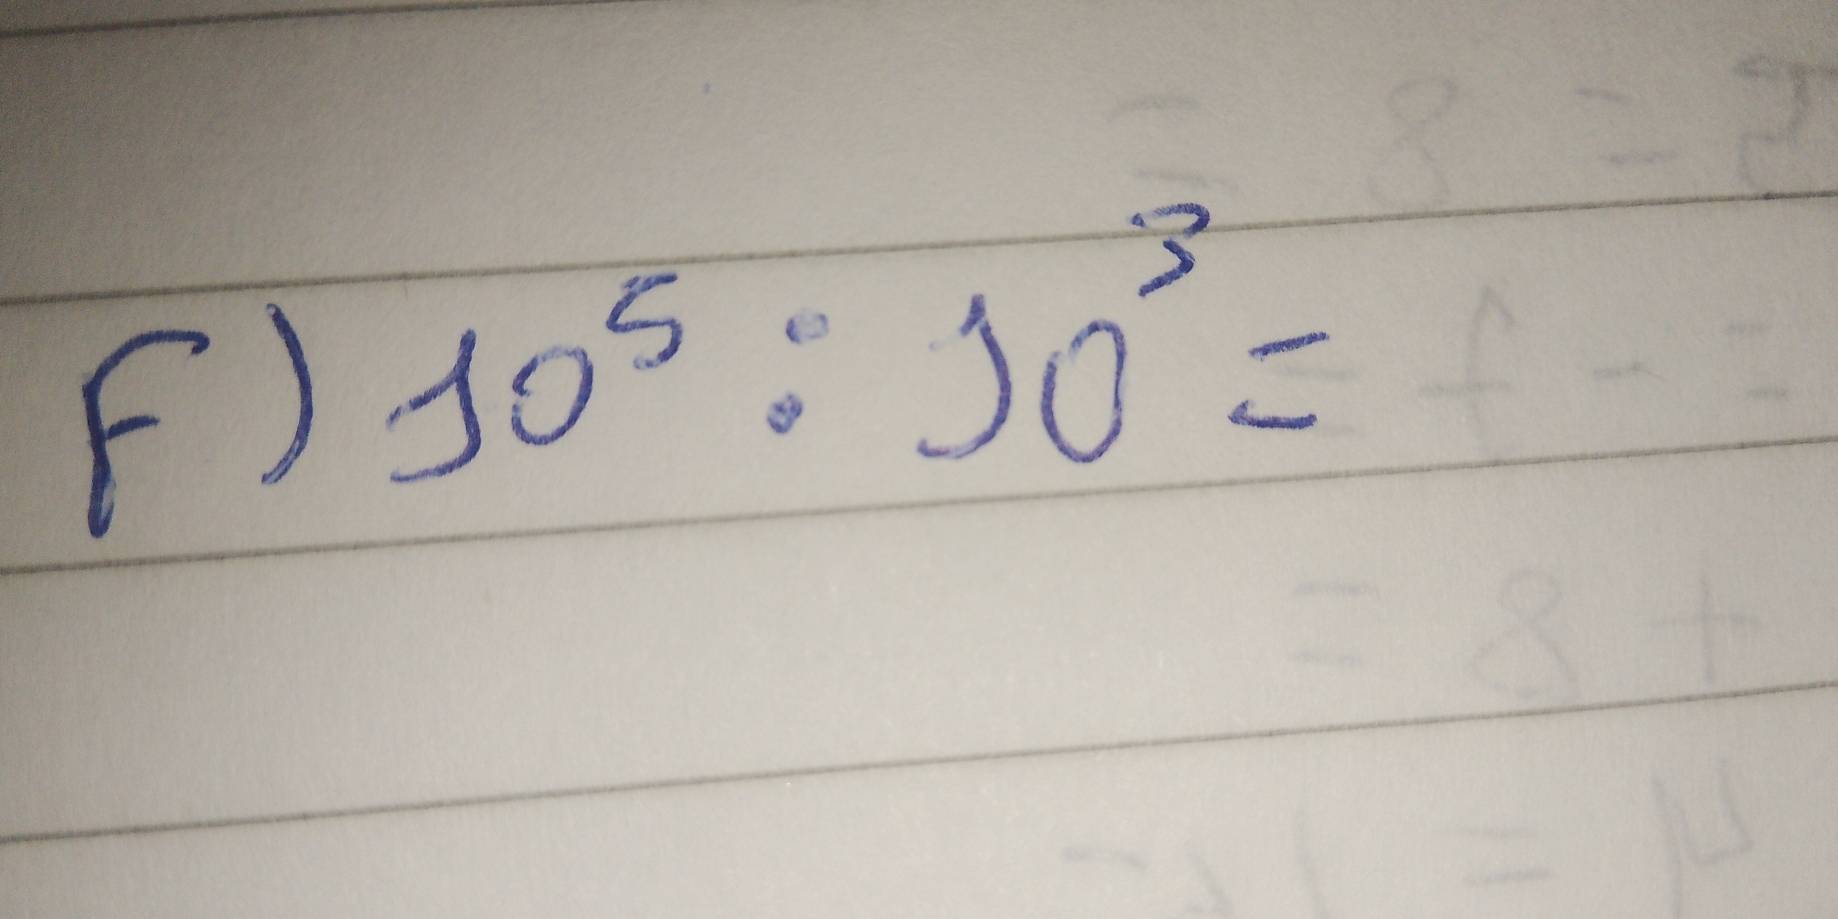 F) 10⁵ : 10³ =